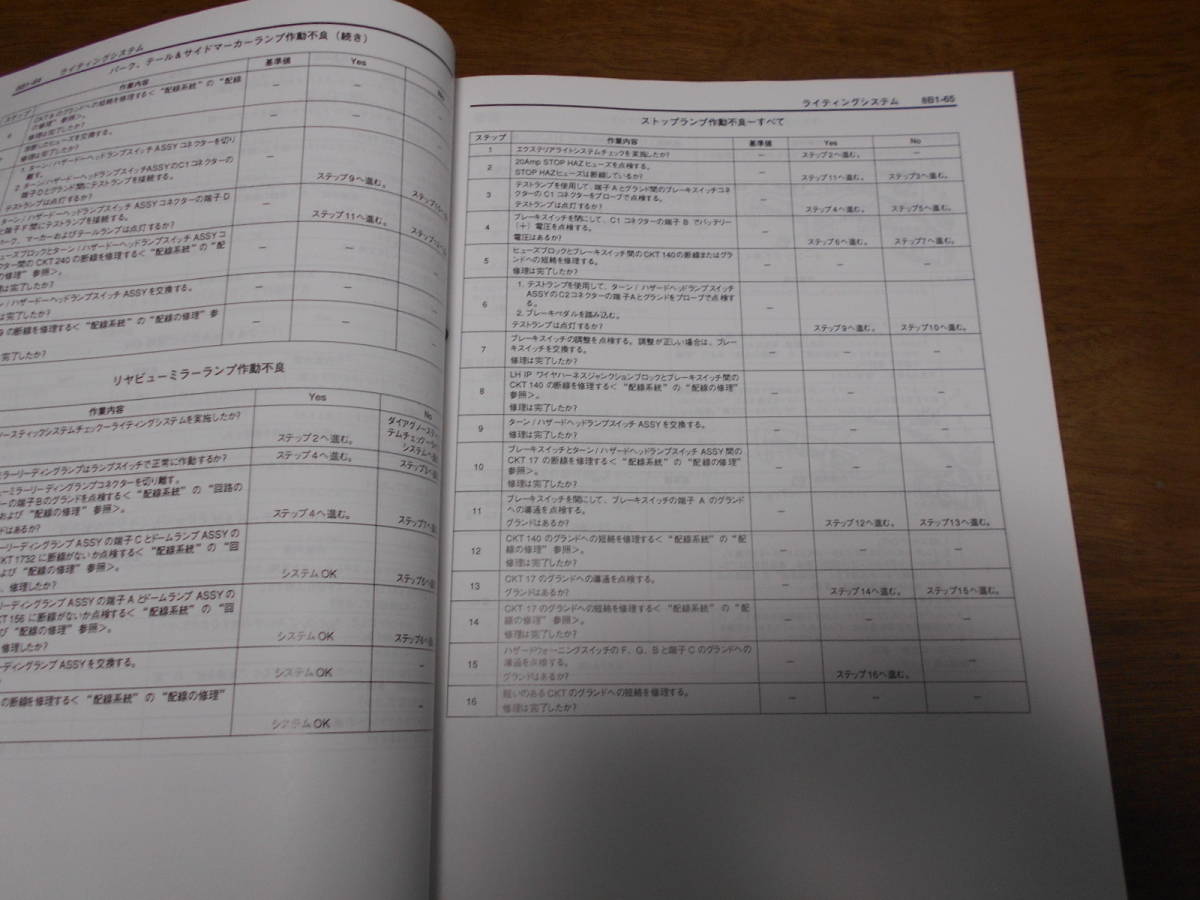 8B1-64 ライティングシステム
パーク、テール＆サイドマーカーランプ作動不良（続き）
ステップ 作業内容 基準値 Yes No
CKT 9 のグランドへの短絡を修理する＜“配線系統”の“配線
の修理”参照＞。
修理は完了したか？ － －
ヒューズを交換する。
修理は完了したか？ － －
1. ターン / ハザードーヘッドランプスイッチ ASSY コネクターを切り
離す。
2. ターン / ハザードーヘッドランプスイッチASSYのC1コネクターの
端子Dとグランド間にテストランプを接続する。
テストランプは点灯するか？ － ステップ9へ進む。
ターン / ハザードーヘッドランプスイッチ ASSYコネクターの端子 D
と端子 F 間にテストランプを接続する。
パーク、マーカーおよびテールランプは点灯するか？ － ステップ11へ進む。
ヒューズブロックとターン / ハザードーヘッドランプスイッチ ASSY コ
クター間の CKT 240 の断線を修理する＜“配線系統”の“配
の修理”参照＞。
は完了したか？ － －
ン / ハザードーヘッドランプスイッチ ASSYを交換する。
は完了したか？ － －
9 の断線を修理する＜“配線系統”の“配線の修理”参
完了したか？ － －
リヤビューミラーランプ作動不良
作業内容 Yes No
ノースティックシステムチェックーライティングシステムを実施したか？
ステップ2へ進む。 ダイアグノース
テムチェック
システムへ
ミラーリーディングランプはランプスイッチで正常に作動するか？ ステップ4へ進む。
ューミラーリーディングランプコネクターを切り離す。
ーの端子Bのグランドを点検する＜“配線系統”の“回路の
および“配線の修理”参照＞。
ドはあるか？ ステップ4へ進む。
ーリーディングランプ ASSY の端子 C とドームランプ ASSY の
CKT 1732 に断線がないか点検する＜“配線系統”の“回
よび“配線の修理”参照＞。
、修理したか？ システムOK
リーディングランプ ASSY の端子 A とドームランプ ASSY の
KT 156 に断線がないか点検する＜“配線系統”の“回
び“配線の修理”参照＞。
修理したか？ システムOK
ーディングランプ ASSYを交換する。
システムOK －
の断線を修理する＜“配線系統”の“配線の修理”
システムOK －
ライティングシステム 8B1-65
ストップランプ作動不良ーすべて
ステップ 作業内容 基準値 Yes No
1 エクステリアライトシステムチェックを実施したか？ － ステップ2へ進む。 －
2 20Amp STOP HAZ ヒューズを点検する。
STOP HAZヒューズは断線しているか？ － ステップ11へ進む。 ステップ3へ進む。
3 テストランプを使用して、端子 A とグランド間のブレーキスイッチコネ
クターの C1 コネクターをプローブで点検する。
テストランプは点灯するか？ － ステップ4へ進む。 ステップ5へ進む。
4 ブレーキスイッチを閉にして、C1 コネクターの端子 B でバッテリー
（＋）電圧を点検する。
電圧はあるか？ － ステップ6へ進む。 ステップ7へ進む。
5 ヒューズブロックとブレーキスイッチ間の CKT 140 の断線またはグラ
ンドへの短絡を修理する。
修理は完了したか？ － － －
6 1. テストランプを使用して、ターン / ハザードヘッドランプスイッチ
ASSYのC2コネクターの端子Aとグランドをプローブで点検す
る。
2. ブレーキペダルを踏み込む。
テストランプは点灯するか？ － ステップ9へ進む。 ステップ10へ進む。
7 ブレーキスイッチの調整を点検する。調整が正しい場合は、ブレー
キスイッチを交換する。
修理は完了したか？ － － －
8 LH IP ワイヤハーネスジャンクションブロックとブレーキスイッチ間の
CKT 140 の断線を修理する＜“配線系統”の“配線の修理”
参照＞。
修理は完了したか？ － － －
9 ターン / ハザードヘッドランプスイッチ ASSYを交換する。
修理は完了したか？ － － －
10 ブレーキスイッチとターン / ハザードヘッドランプスイッチ ASSY 間の
CKT 17 の断線を修理する＜“配線系統”の“配線の修理”
参照＞。
修理は完了したか？ － － －
11 ブレーキスイッチを開にして、ブレーキスイッチの端子 A のグランド
への導通を点検する。
グランドはあるか？ － ステップ12へ進む。 ステップ13へ進む。
12 CKT 140 のグランドへの短絡を修理する＜“配線系統”の“配
線の修理”参照＞。
修理は完了したか？ － － －
13 CKT 17 のグランドへの導通を点検する。
グランドはあるか？ － ステップ14へ進む。 ステップ15へ進む。
14 CKT 17 のグランドへの短絡を修理する＜“配線系統”の“配
線の修理”参照＞。
修理は完了したか？ － － －
15 ハザードウォーニングスイッチの F、G、B と端子 C のグランドへの
導通を点検する。
グランドはあるか？ － ステップ16へ進む。 －
16 疑いのあるCKTのグランドへの短絡を修理する。
修理は完了したか？ － － －